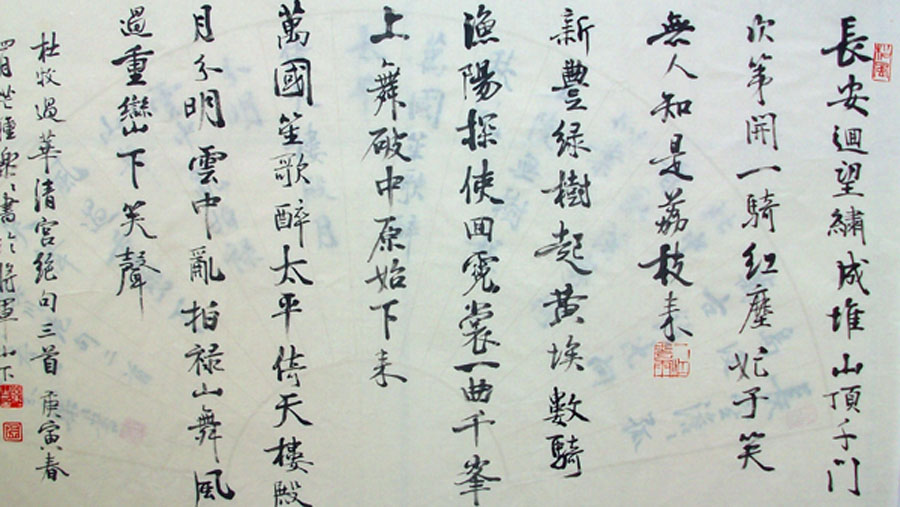 長安迴望繡成堆山頂千門
次第開一騎紅塵妃子笑
無人知是荔枝来
新豐綠樹起黄埃數騎
漁陽探使回霓裳一曲千峯
上舞破中原始下来
萬國笙歌醉太平倚天樓殿
月分明雲中亂拍祿山舞風
過重巒下笑聲
杜牧過華清宮絕句三首 庚寅春
四月芒種樂書於將軍山下